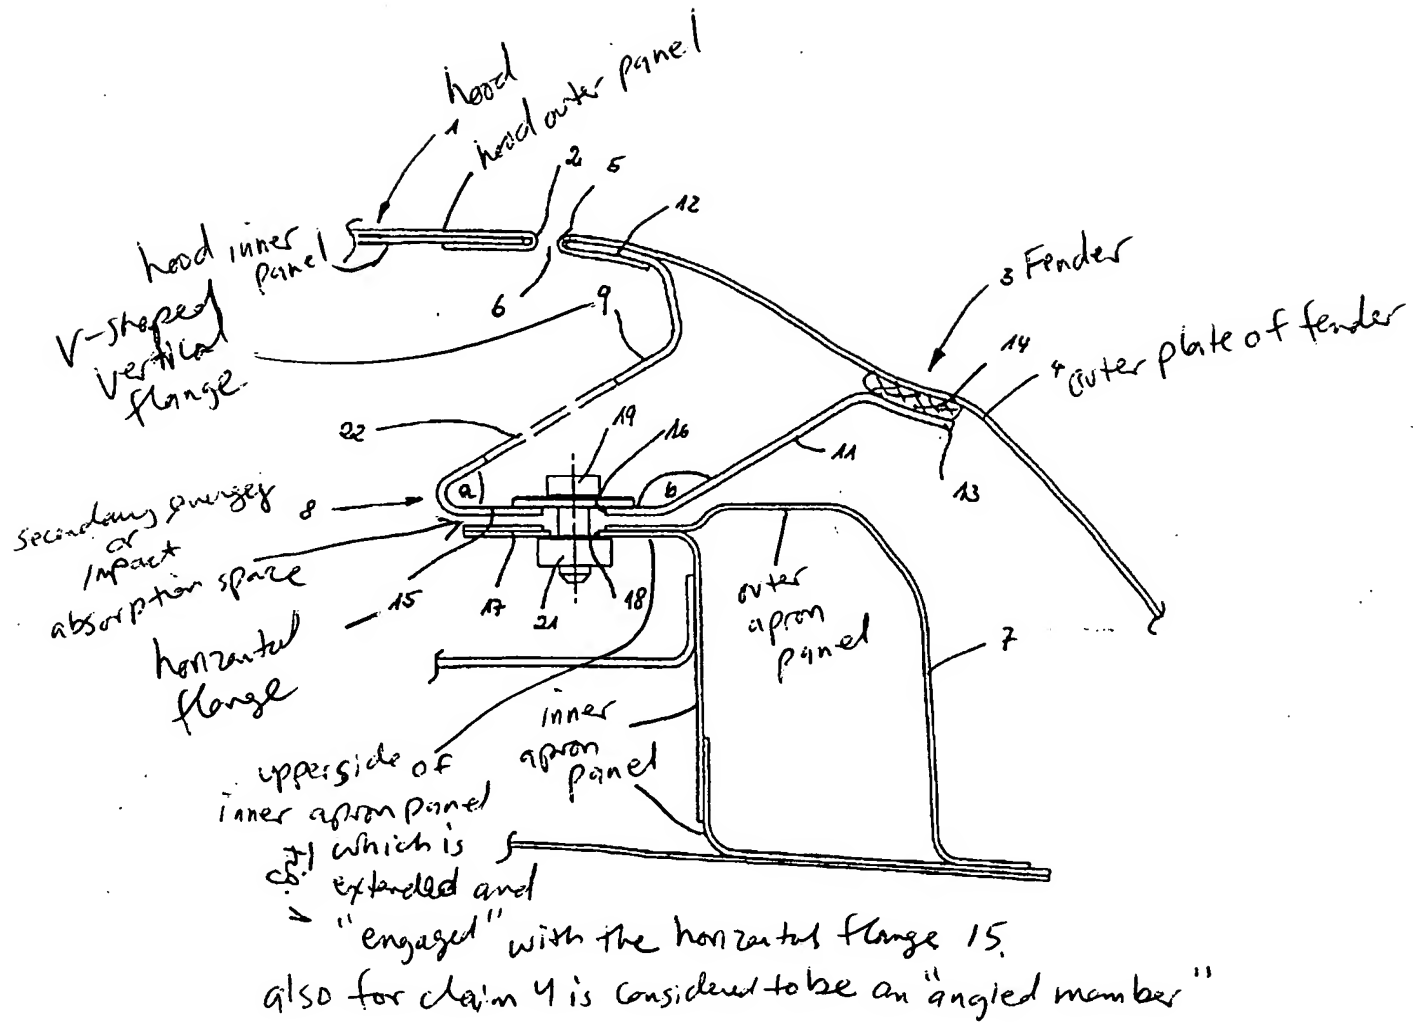 hood
1
hood outer panel
2
5
12
hood inner
panel
3 Fender
V-shaped
vertical
flange
6
9
14
4 outer plate of fender
22
19
16
11
13
a
b
secondary energy
or
impact
absorption space
8
15
17
21
18
horizontal
flange
outer
apron
panel
7
inner
apron
panel
upperside of
inner apron panel
which is
extended and
"engaged" with the horizontal flange 15.
also for claim 4 is considered to be an "angled member"